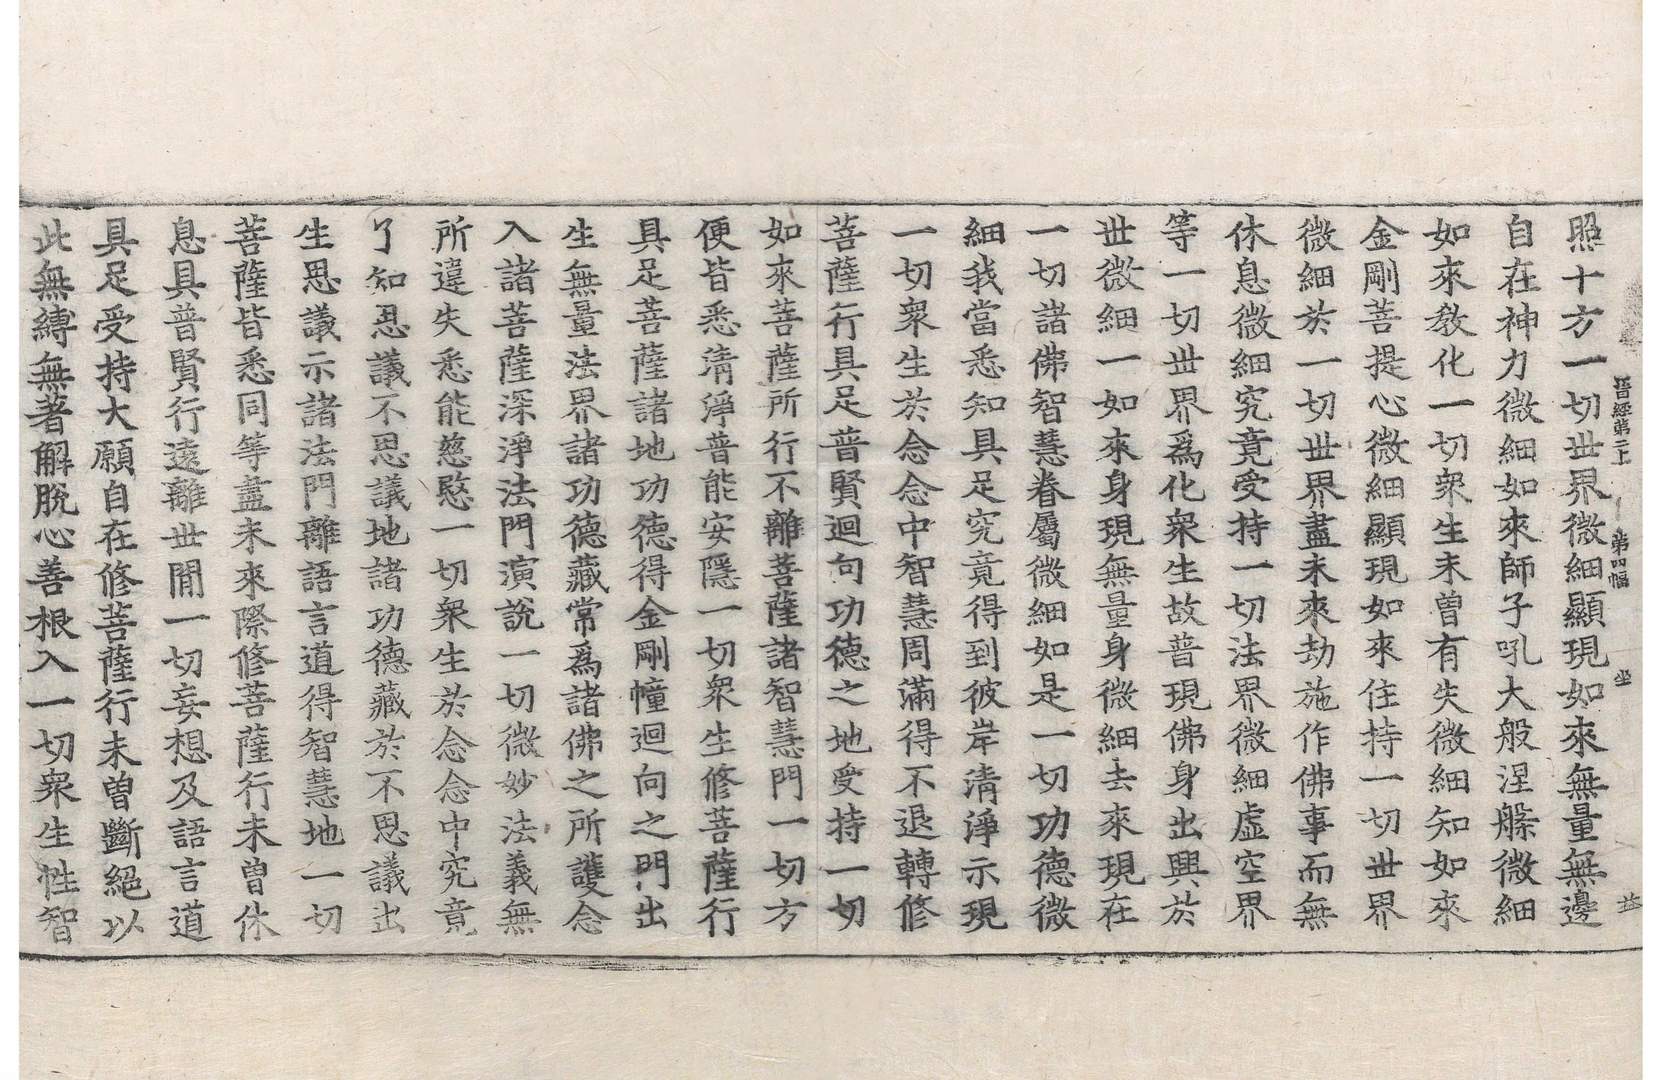 晋經第二上 第四幅 坐
照十方一切世界微細顯現如來無量無邊
自在神力微細如來師子吼大般涅槃微細
如來教化一切衆生未曾有失微細知如來
金剛菩提心微細顯現如來住持一切世界
微細於一切世界盡未來劫施作佛事而無
休息微細究竟受持一切法界微細虛空界
等一切世界爲化衆生故普現佛身出興於
世微細一如來身現無量身微細去來現在
一切諸佛智慧眷屬微細如是一切功德微
細我當悉知具足究竟得到彼岸清淨示現
一切衆生於念念中智慧周滿得不退轉修
菩薩行具足普賢迴向功德之地受持一切
如來菩薩所行不離菩薩諸智慧門一切方
便皆悉清淨普能安隱一切衆生修菩薩行
具足菩薩諸地功德得金剛幢迴向之門出
生無量法界諸功德藏常爲諸佛之所護念
入諸菩薩深淨法門演說一切微妙法義無
所違失悉能慈愍一切衆生於念念中究竟
了知思議不思議地諸功德藏於不思議出
生思議示諸法門離語言道得智慧地一切
菩薩皆悉同等盡未來際修菩薩行未曾休
息具普賢行遠離世間一切妄想及語言道
具足受持大願自在修菩薩行未曾斷絕以
此無縛無著解脫心善根入一切衆生性智